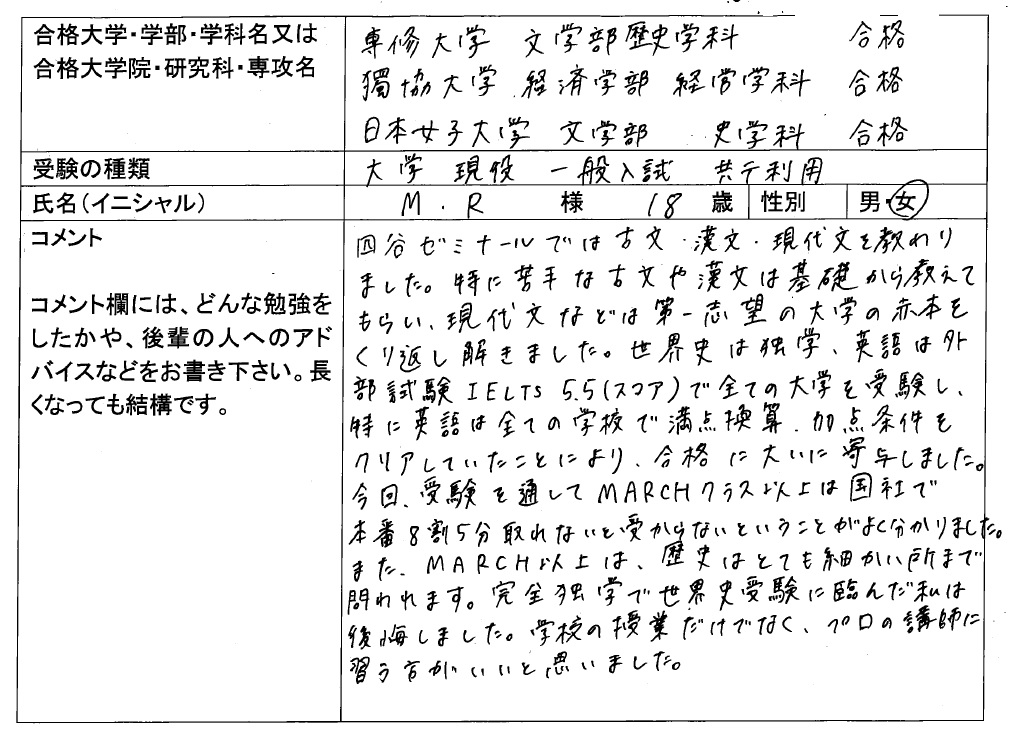 合格大学・学部・学科名又は
合格大学院・研究科・専攻名
専修大学 文学部歴史学科 合格
獨協大学 経済学部 経営学科 合格
日本女子大学 文学部 史学科 合格
受験の種類
大学 現役 一般入試 共テ利用
氏名（イニシャル）
M．R 様 18 歳 性別 男・女
コメント
コメント欄には、どんな勉強を
したかや、後輩の人へのアド
バイスなどをお書き下さい。長
くなっても結構です。
四谷ゼミナールでは古文・漢文・現代文を教わり
ました。特に苦手な古文や漢文は基礎から教えて
もらい、現代文などは第一志望の大学の赤本を
くり返し解きました。世界史は独学、英語は外
部試験IELTS 5.5(スコア)で全ての大学を受験し、
特に英語は全ての学校で満点換算、加点条件を
クリアしていたことにより、合格に大いに寄与しました。
今回、受験を通してMARCHクラス以上は国社で
本番8割5分取れないと受からないということがよく分かりました。
また、MARCH以上は、歴史はとても細かい所まで
問われます。完全独学で世界史受験に臨んだ私は
後悔しました。学校の授業だけでなく、プロの講師に
習う方がいいと思いました。